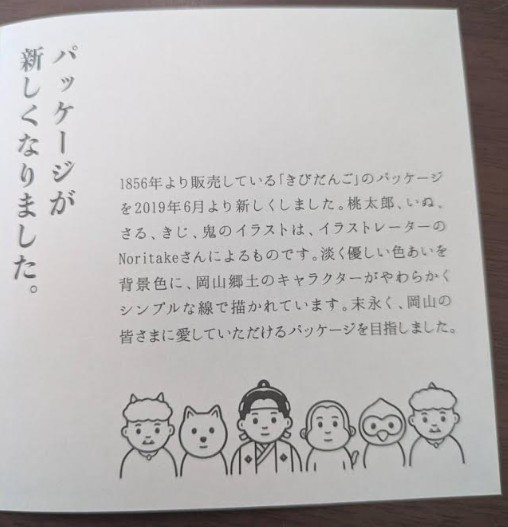 パッケージが
新しくなりました。
1856年より販売している「きびだんご」のパッケージ
を2019年6月より新しくしました。桃太郎、いぬ、
さる、きじ、鬼のイラストは、イラストレーターの
Noritakeさんによるものです。淡く優しい色あいを
背景色に、岡山郷土のキャラクターがやわらかく
シンプルな線で描かれています。末永く、岡山の
皆さまに愛していただけるパッケージを目指しました。